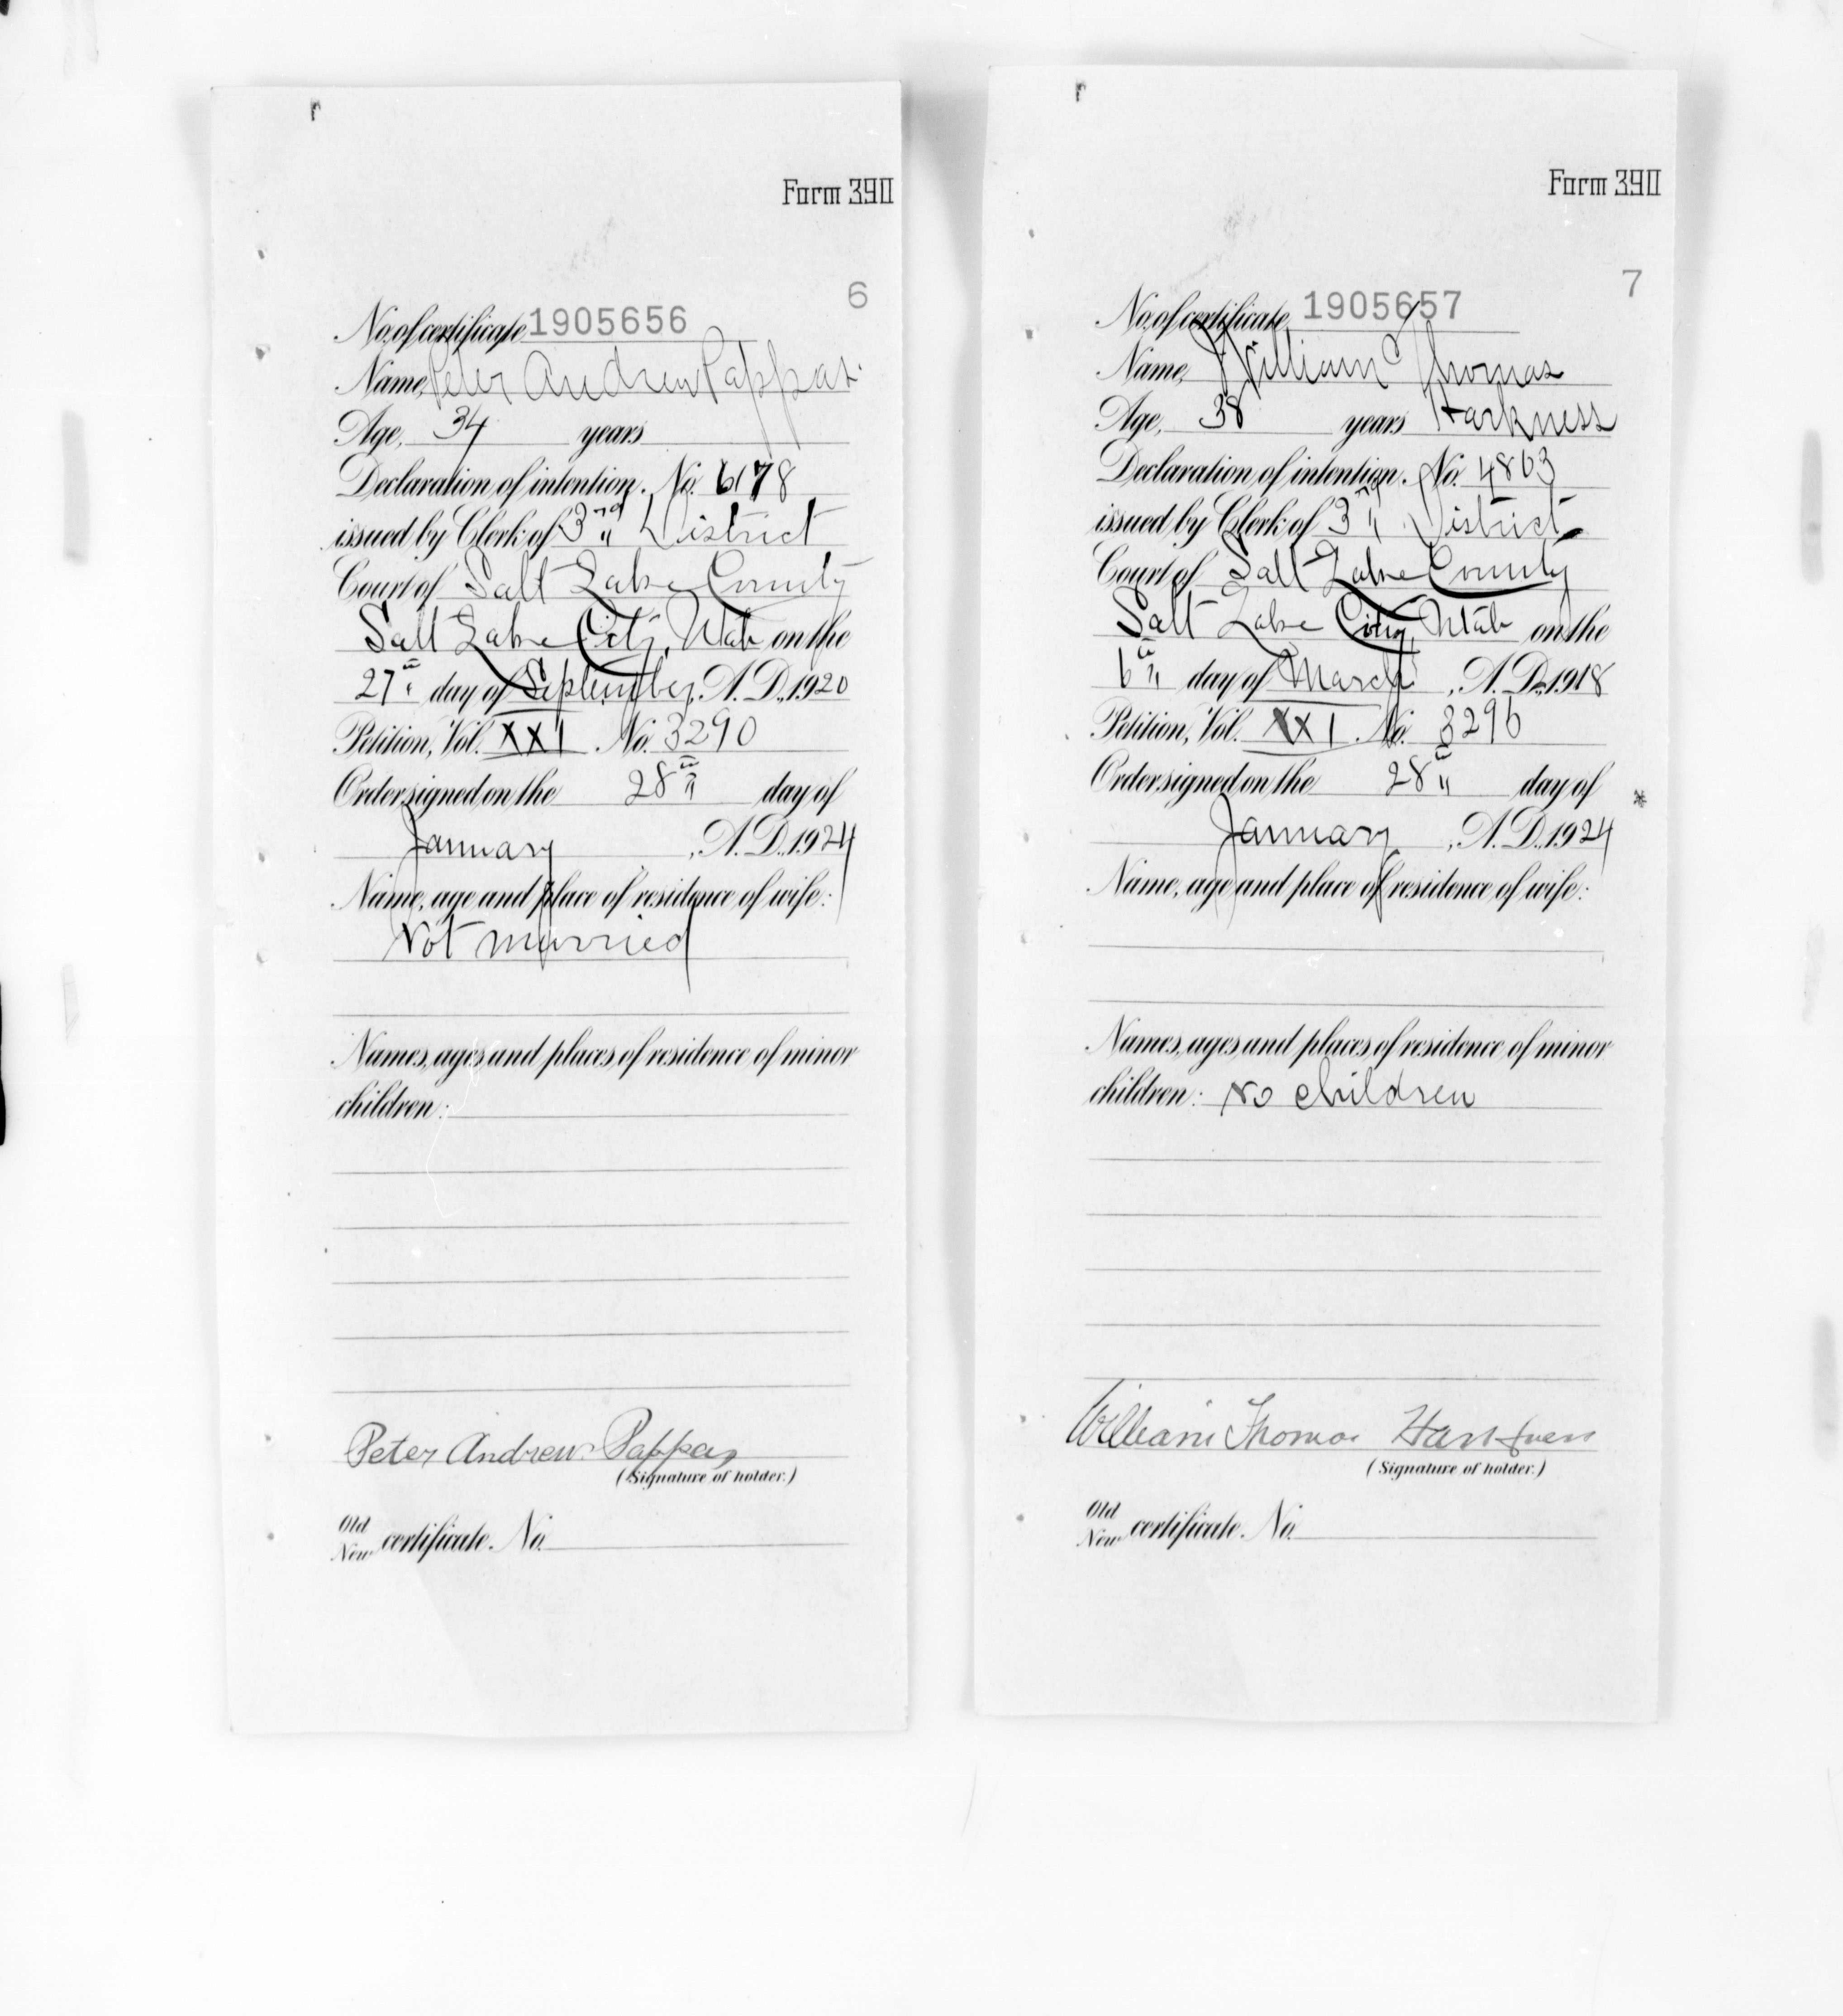 Form 390
6
No. of certificate 1905656
Name, Peter Andrew Pappas.
Age, 34 years
Declaration of intention. No. 6178
issued by Clerk of 3rd District
Court of Salt Lake County
Salt Lake City, Utah on the
27th day of September, A. D., 1920
Petition, Vol. XXI No. 3290
Order signed on the 28th day of
January, A. D., 1924
Name, age and place of residence of wife:
Not married
Names, ages and places of residence of minor
children:
Peter Andrew Pappas
(Signature of holder.)
Old
New certificate. No.
Form 390
7
No. of certificate 1905657
Name, William Thomas
Age, 38 years Harkness
Declaration of intention. No. 4863
issued by Clerk of 3rd District
Court of Salt Lake County
Salt Lake City, Utah on the
6th day of March, A. D., 1918
Petition, Vol. XXI. No. 3296
Order signed on the 28th day of
January, A. D., 1924
Name, age and place of residence of wife:
Names, ages and places of residence of minor
children: No children
William Thomas Harkness
(Signature of holder.)
Old
New certificate. No.